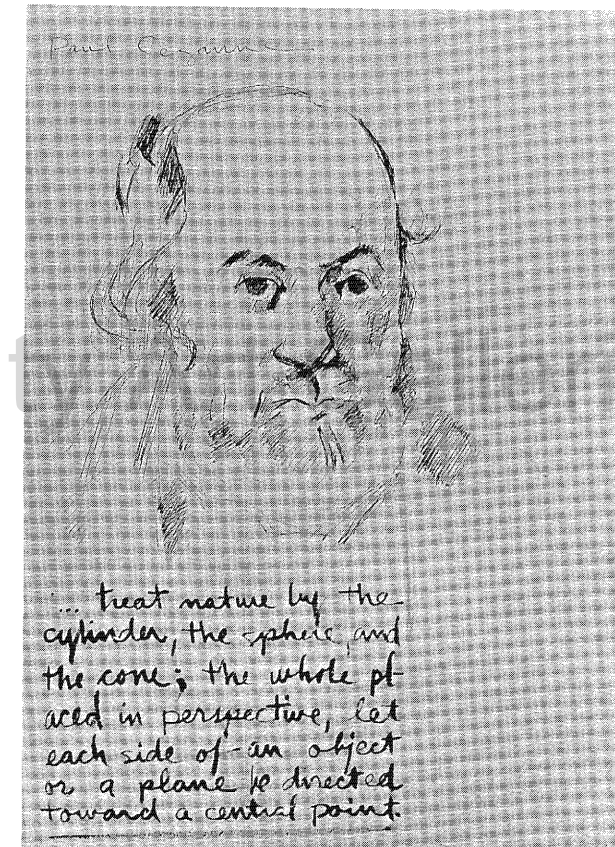 Paul Cezanne
... treat nature by the
cylinder, the sphere, and
the cone; the whole pl-
aced in perspective, let
each side of an object
or a plane be directed
toward a central point.